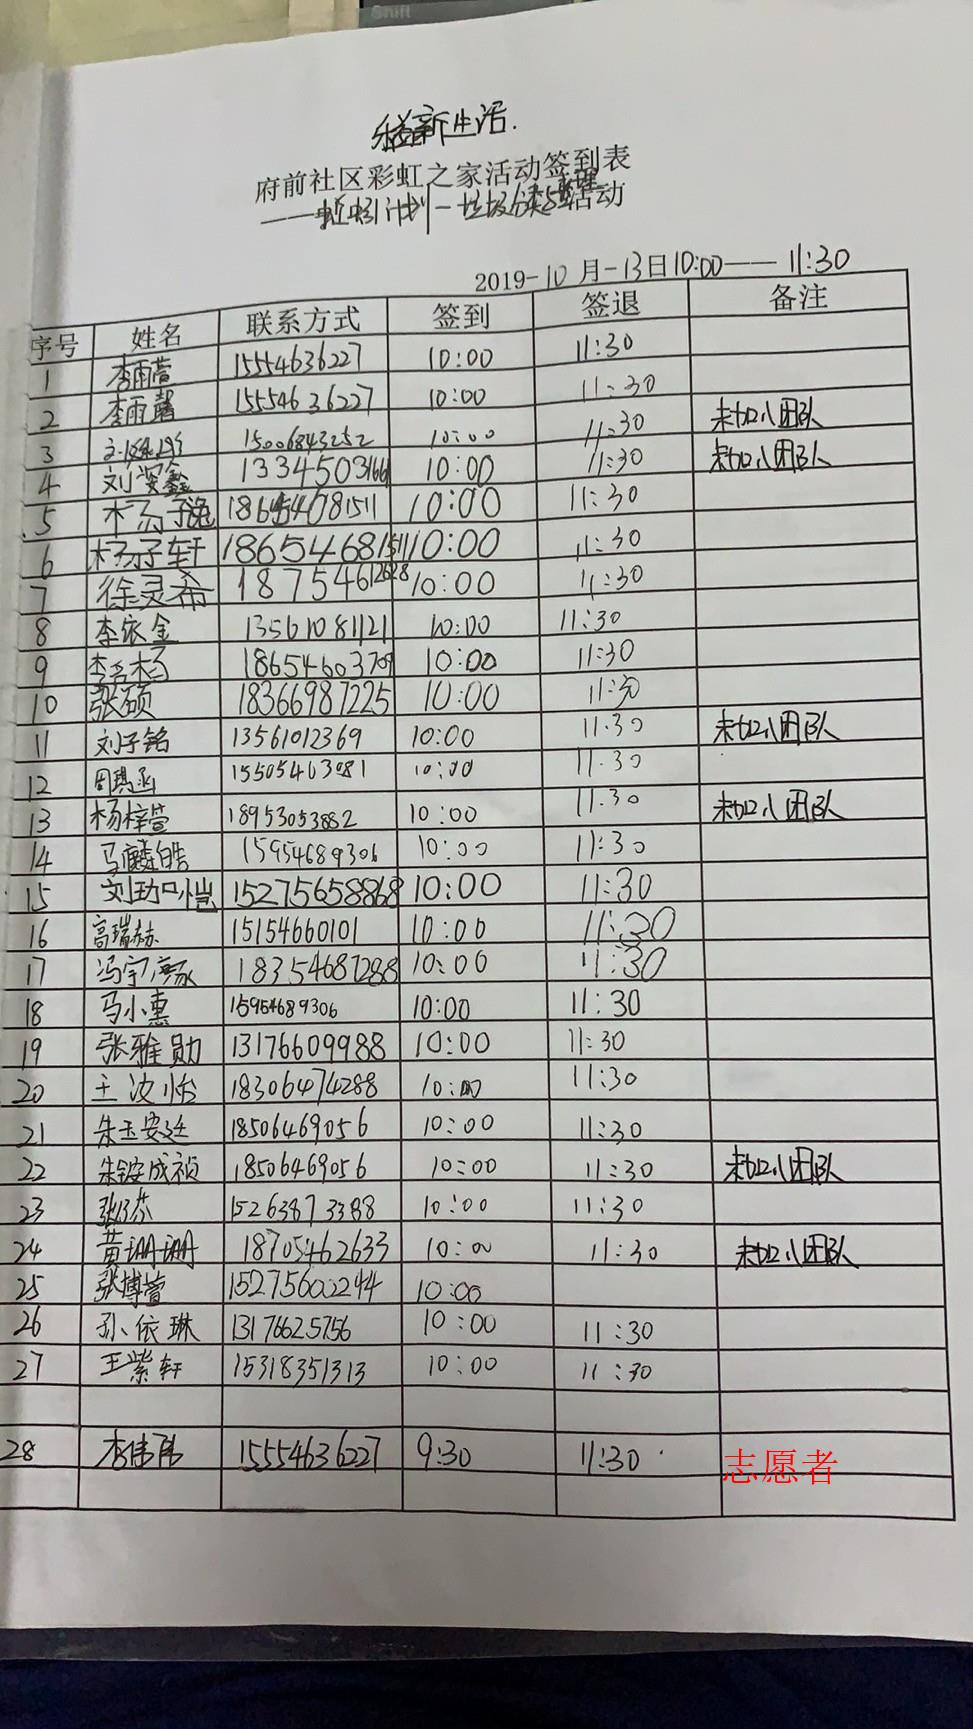 Shift
新生活.
府前社区彩虹之家活动签到表
——蚯蚓计划—垃圾分类与整理活动
2019-10月-13日10:00—— 11:30
序号 姓名 联系方式 签到 签退 备注
1 李雨萱 15554636227 10:00 11:30
2 李雨馨 15554636227 10:00 11:30 未加入团队
3 15006843252 10:00 11:30 未加入团队
4 刘安鑫 1334503166 10:00 11:30
5 杨子逸 10:00 11:30
6 杨子轩 18654681511 10:00 11:30
7 徐灵希 10:00 11:30
8 李依金 13561081121 10:00 11:30
9 李名杨 18654603709 10:00 11:30
10 张硕 18366987225 10:00 11:30
11 刘子铭 13561012369 10:00 11:30 未加入团队
12 周琪函 15505463081 10:00 11:30
13 杨梓萱 18953053882 10:00 11:30 未加入团队
14 马麟皓 15954689306 10:00 11:30
15 15275658868 10:00 11:30
16 高瑞赫 15154660101 10:00 11:30
17 18354687288 10:00 11:30
18 马小惠 15954689306 10:00 11:30
19 张雅勋 13176609988 10:00 11:30
20 王汝怡 18306474288 10:00 11:30
21 朱玉安廷 18506469056 10:00 11:30
22 朱钰安成祯 18506469056 10:00 11:30 未加入团队
23 15263873388 10:00 11:30
24 黄珊珊 18705462633 10:00 11:30 未加入团队
25 张博萱 15275602244 10:00
26 孙依琳 13176625756 10:00 11:30
27 王紫轩 15318351313 10:00 11:30
28 李伟伟 15554636227 9:30 11:30 志愿者